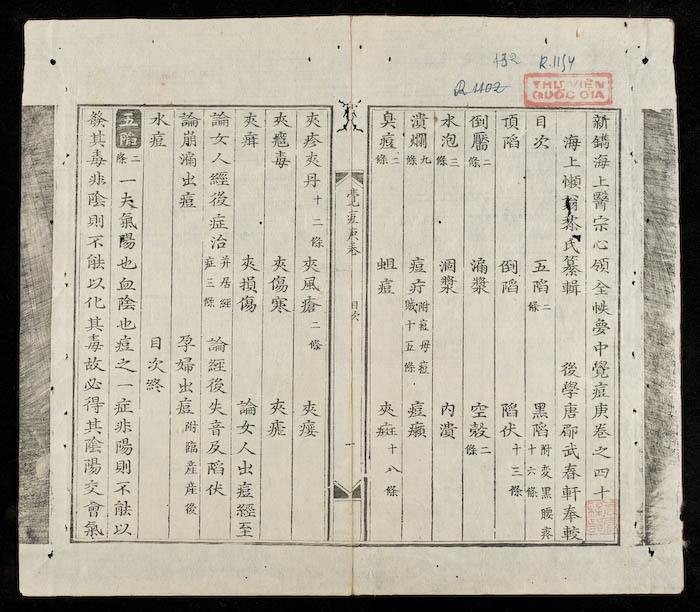 R.1154
THƯ VIỆN
QUỐC GIA
新鐫海上醫宗心領全帙夢中覺痘庚卷之四十
海上懶翁黎氏纂輯 後學唐郿武春軒奉較
目次 五陷二條 黑陷附变黑腰疼十六條
頂陷 倒陷 陷伏十三條
倒靨二條 漏漿 空殼二條
水泡三條 涸漿 內潰
潰爛九條 痘疔附痘母痘賊十五條 痘癩
臭痘二條 蛆痘 夾癍十八條
覺痘庚卷 目次 一
夾疹夾丹十二條 夾風瘡二條 夾痿
夾毒 夾傷寒 夾瘧
夾癖 夾損傷 論女人出痘經至
論女人經後症治并居經症三條 論經後失音及陷伏
論崩漏出痘 孕婦出痘附臨産産後
水痘 目次終
五陷二條 一夫氣陽也血陰也痘之一症非陽則不能以
發其毒非陰則不能以化其毒故必得其陰陽交會氣